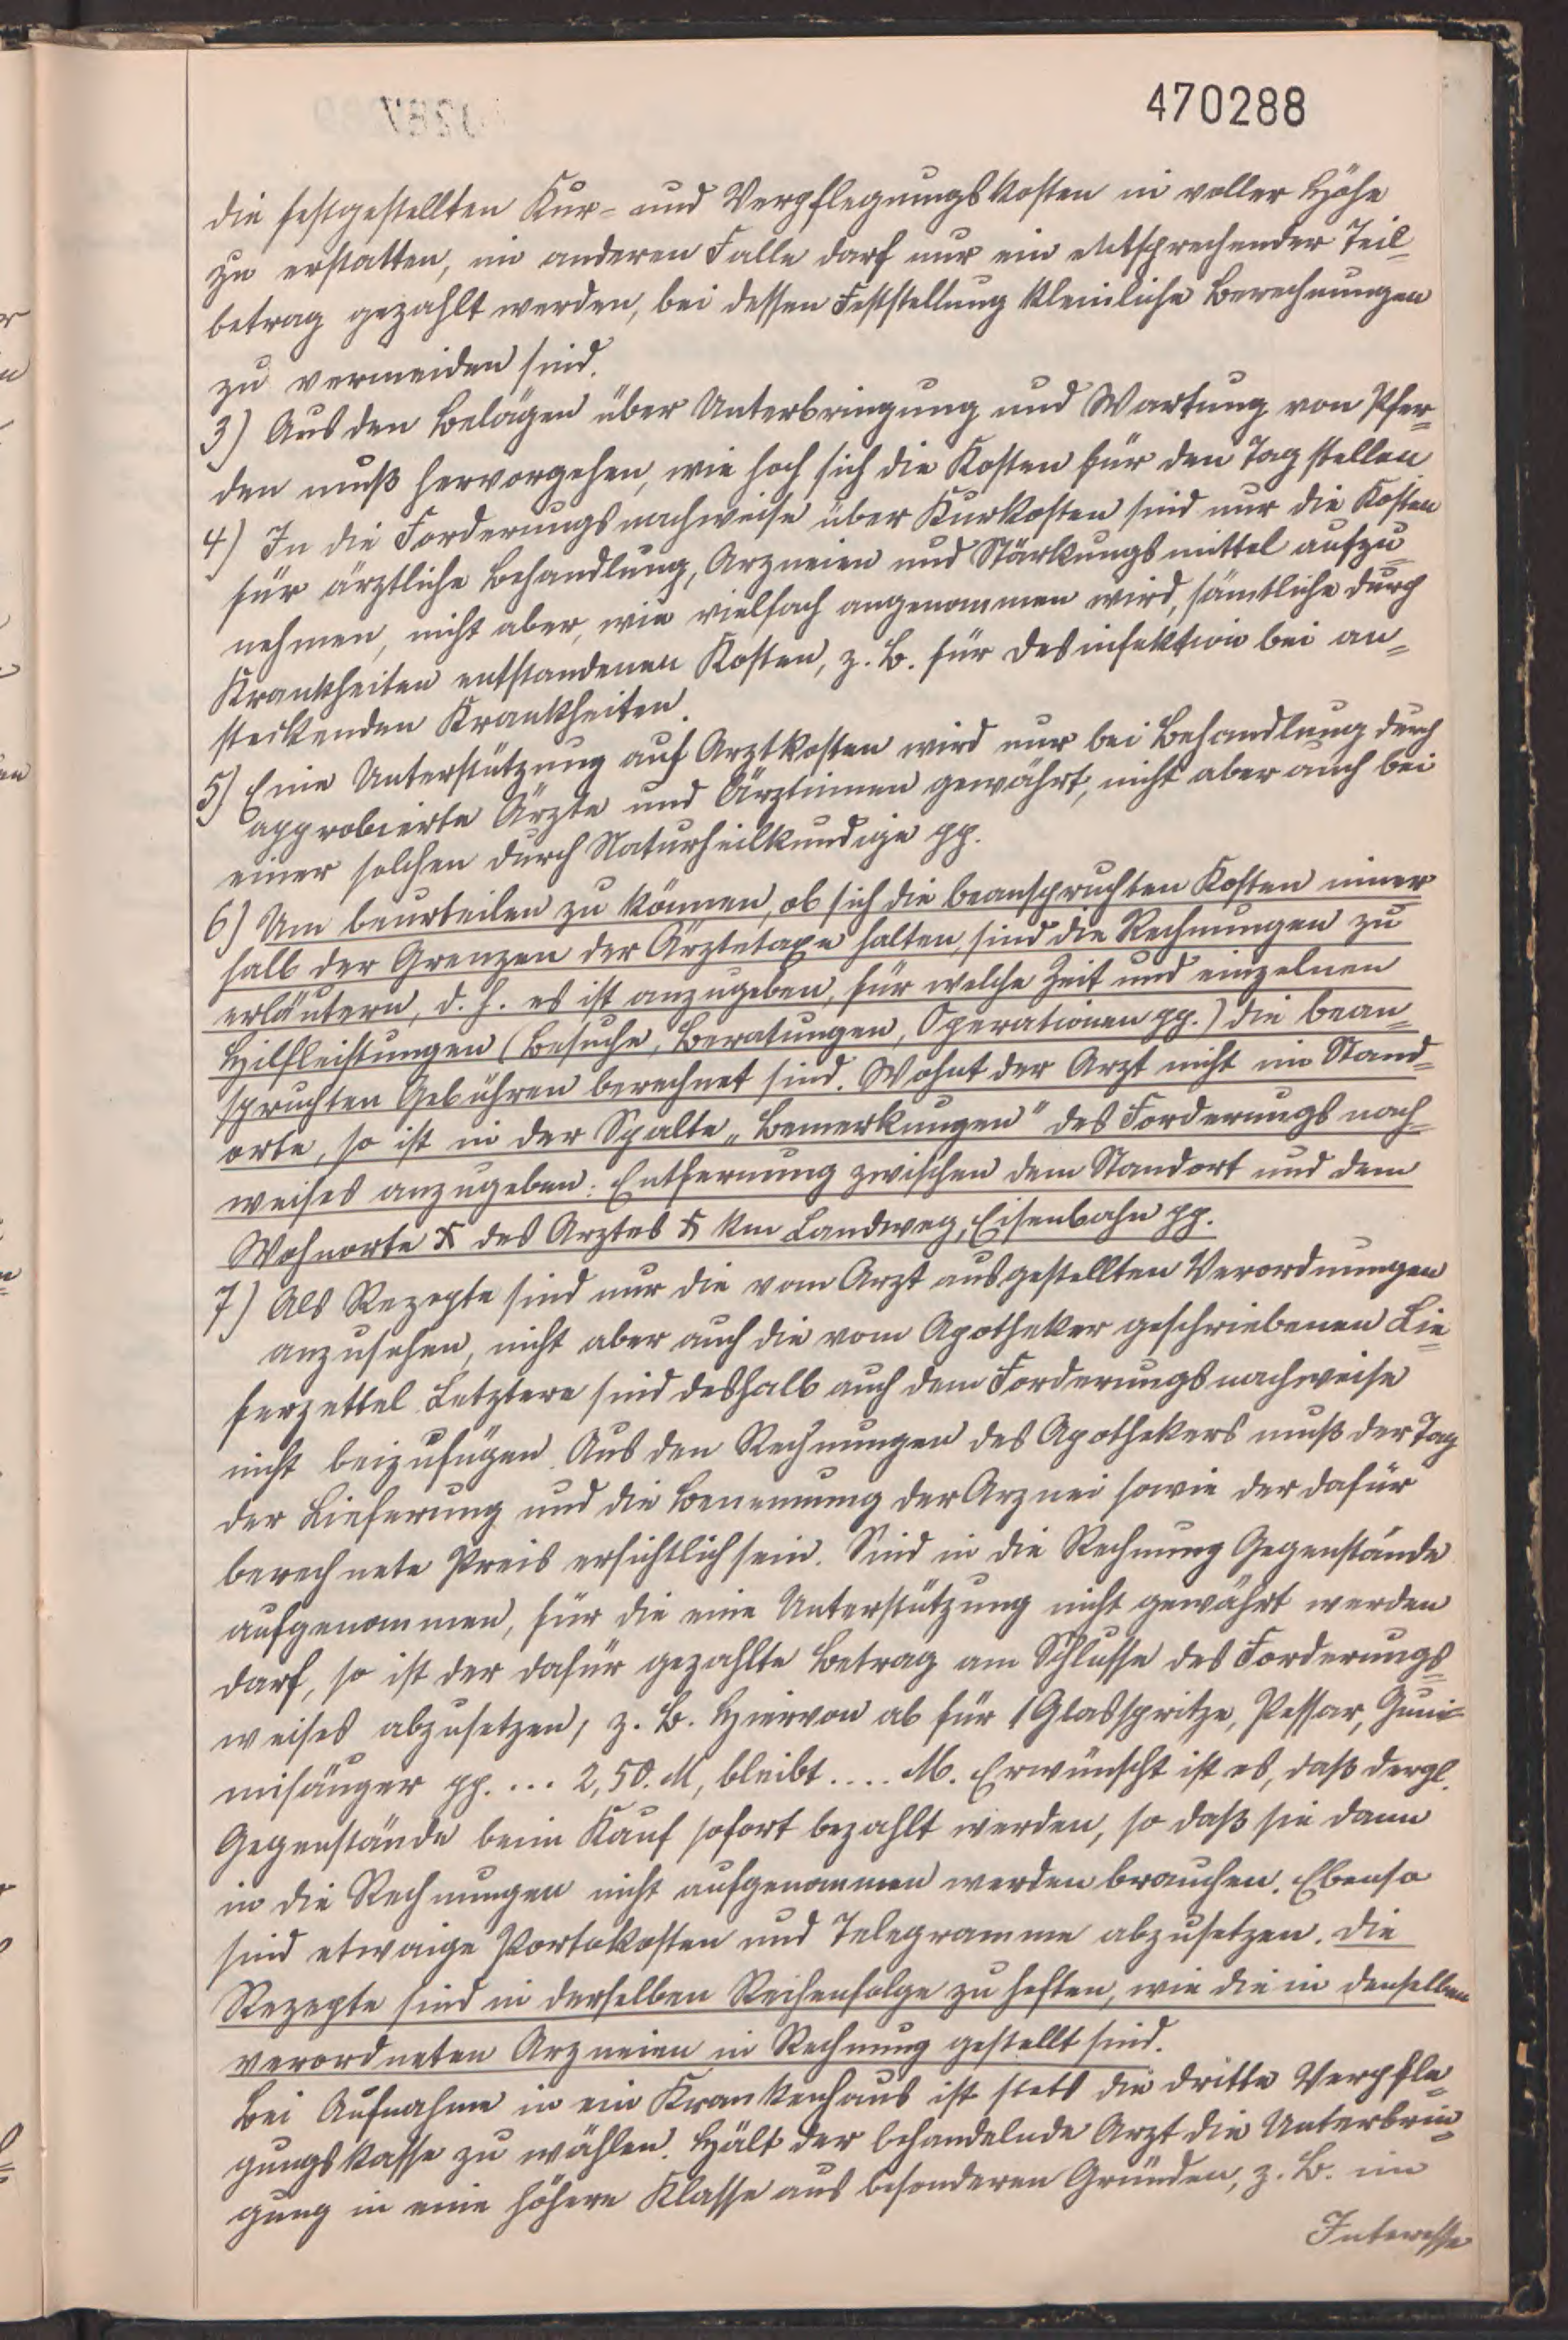 470288
die festgestellten Kur- und Verpflegungskosten in voller Höhe
zu erstatten, im anderen Falle darf nur ein entsprechender Teil-
betrag gezahlt werden, bei dessen Feststellung kleinliche Berechnungen
zu vermeiden sind.
3) Aus den Belägen über Unterbringung und Wartung von Pfer-
den muß hervorgehen, wie hoch sich die Kosten für den Tag stellen
4) In die Forderungsnachweise über Kurkosten sind nur die Kosten
für ärztliche Behandlung, Arzneien und Stärkungsmittel aufzu-
nehmen, nicht aber, wie vielfach angenommen wird, sämtliche durch
Krankheiten entstandenen Kosten, z. B. für Desinfektion bei an-
steckenden Krankheiten.
5) Eine Unterstützung auf Arztkosten wird nur bei Behandlung durch
approbierte Ärzte und Ärztinnen gewährt, nicht aber auch bei
einer solchen durch Naturheilkundige pp.
6) Um beurteilen zu können, ob sich die beanspruchten Kosten inner
halb der Grenzen der Ärztetaxe halten, sind die Rechnungen zu
erläutern, d. h. es ist anzugeben, für welche Zeit und einzelnen
Hilfleistungen (Besuche, Beratungen, Operationen pp.) die bean-
spruchten Gebühren berechnet sind. Wohnt der Arzt nicht im Stand-
orte, so ist in der Spalte „Bemerkungen" des Forderungsnach-
weises anzugeben: Entfernung zwischen dem Standort und dem
Wohnorte X des Arztes X km Landweg, Eisenbahn pp.
7) Als Rezepte sind nur die vom Arzt ausgestellten Verordnungen
anzusehen, nicht aber auch die vom Apotheker geschriebenen Lie-
ferzettel. Letztere sind deshalb auch dem Forderungsnachweise
nicht beizufügen. Aus den Rechnungen des Apothekers muß der Tag
der Lieferung und die Benennung der Arznei sowie der dafür
berechnete Preis ersichtlich sein. Sind in die Rechnung Gegenstände
aufgenommen, für die eine Unterstützung nicht gewährt werden
darf, so ist der dafür gezahlte Betrag am Schlusse des Forderungs-
weises abzusetzen, z. B. Hiervon ab für 1 Glasspritze, Pessar, Gum-
misäuger pp. ... 2,50. M, bleibt .... M. Erwünscht ist es, daß dergl.
Gegenstände beim Kauf sofort bezahlt werden, so daß sie dann
in die Rechnungen nicht aufgenommen werden brauchen. Ebenso
sind etwaige Portokosten und Telegramme abzusetzen. Die
Rezepte sind in derselben Reihenfolge zu heften, wie die in denselben
verordneten Arzneien in Rechnung gestellt sind.
Bei Aufnahme in ein Krankenhaus ist stets die dritte Verpfle-
gungsklasse zu wählen. Hält der behandelnde Arzt die Unterbrin-
gung in eine höhere Klasse aus besonderen Gründen, z. B. im
Interesse